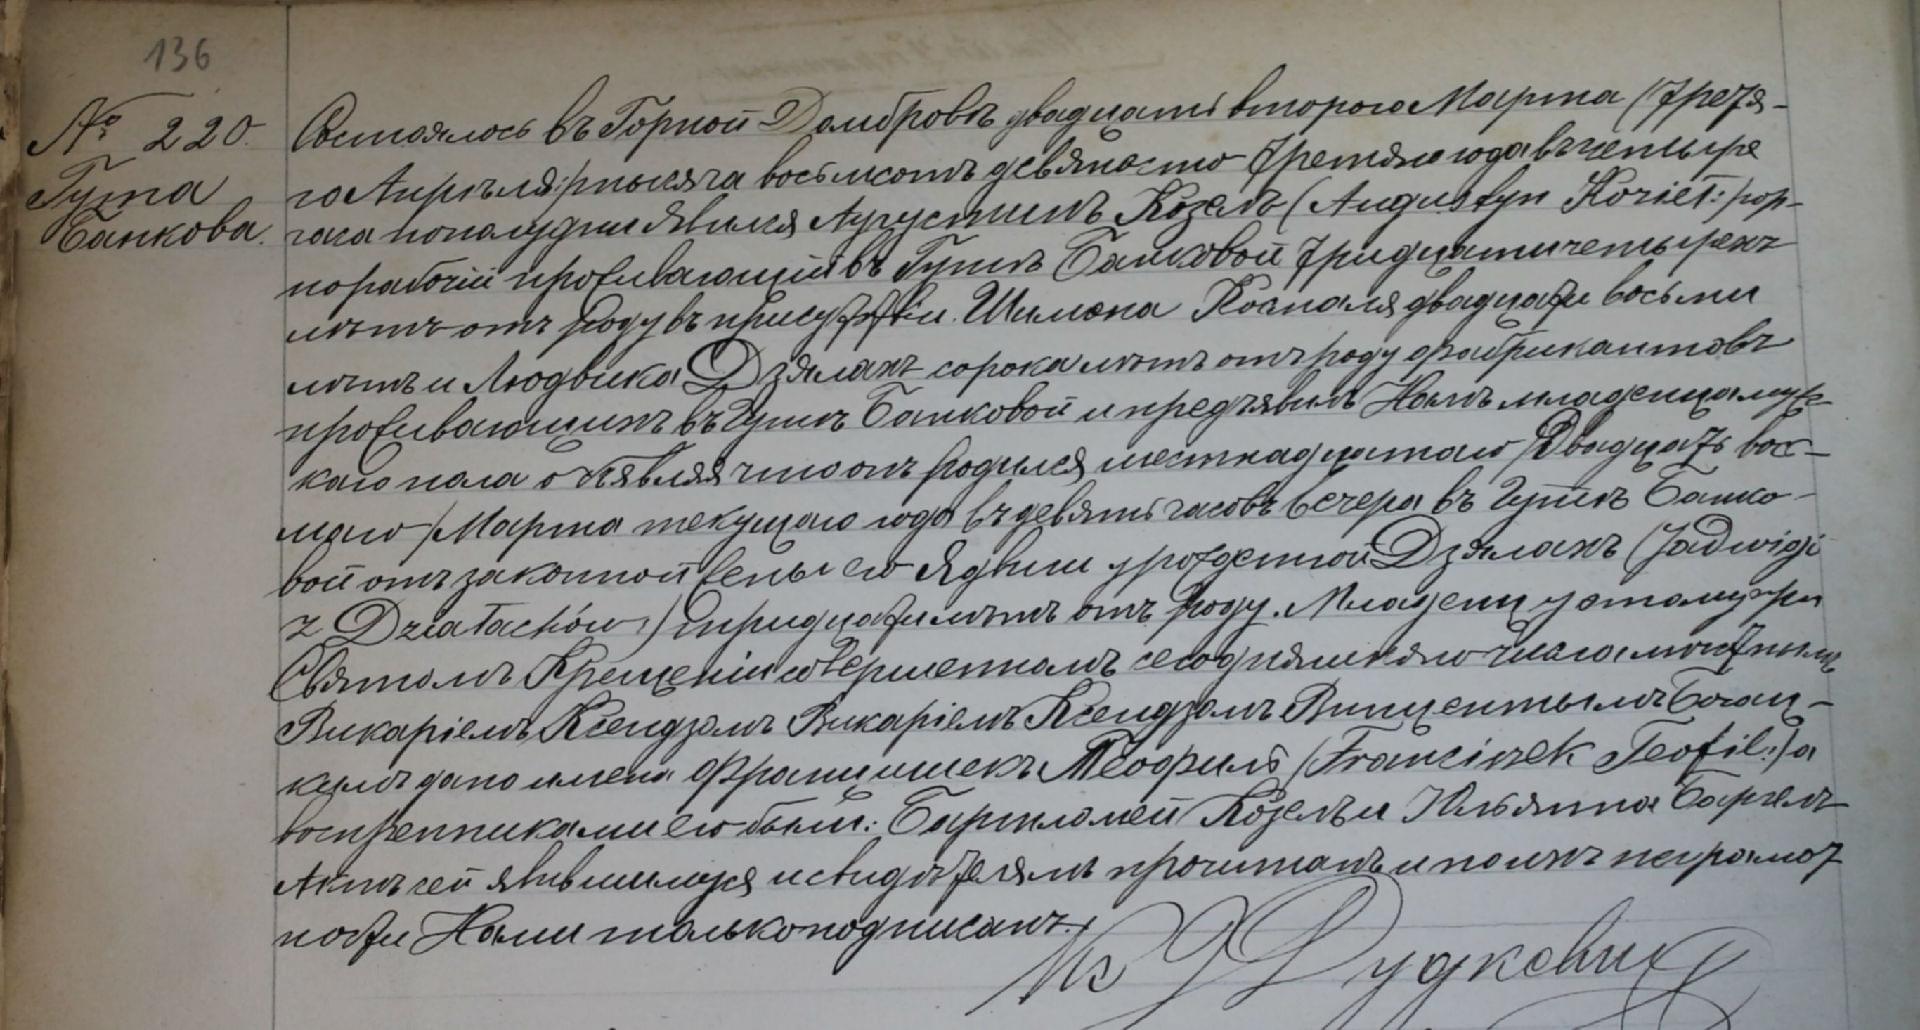 136
№ 220.
Гута
Банкова.
Состоялось въ Горной Домбровѣ двадцать второго Марта (Третя-
го Апрѣля:) тысяча восьмсотъ девяносто Третяго года въ четыре
часа пополудни Явился Аугустинъ Козелъ (Augustyn Kozieł:) гор-
но рабочій проживающій въ Гутѣ Банковой Тридцати четырехъ
лѣтъ отъ роду въ присутствіи Шимона Коваля двадцати восьми
лѣтъ и Людвика Дзялахъ сорока лѣтъ отъ роду фабрикантовъ
проживающихъ въ Гутѣ Банковой и предъявилъ Намъ младенца муж-
скаго пола объявляя что онъ родился шестнадцатаго /Двадцать вось-
маго/ Марта текущаго года въ девять часовъ вечера въ Гутѣ Банко-
вой отъ законной жены его Ядвиги урожденной Дзялахъ (Jadwigi
z Działachów:) тридцати лѣтъ отъ роду. Младенцу этому при
Святомъ Крещеніи совершенномъ сегодняшняго числа мѣстнымъ
Викаріемъ Ксендзомъ Викаріемъ Ксендзомъ Винцентымъ
дано имена Францишекъ Теофиль (Franciszek Teofil:) а
воспрѣнниками его были: Бартломей Козелъ и Юльянна
Актъ сей явившимуся и свидѣтелямъ прочитанъ и по ихъ неграмот
ности Нами только подписанъ.
Кс Дудкевичъ